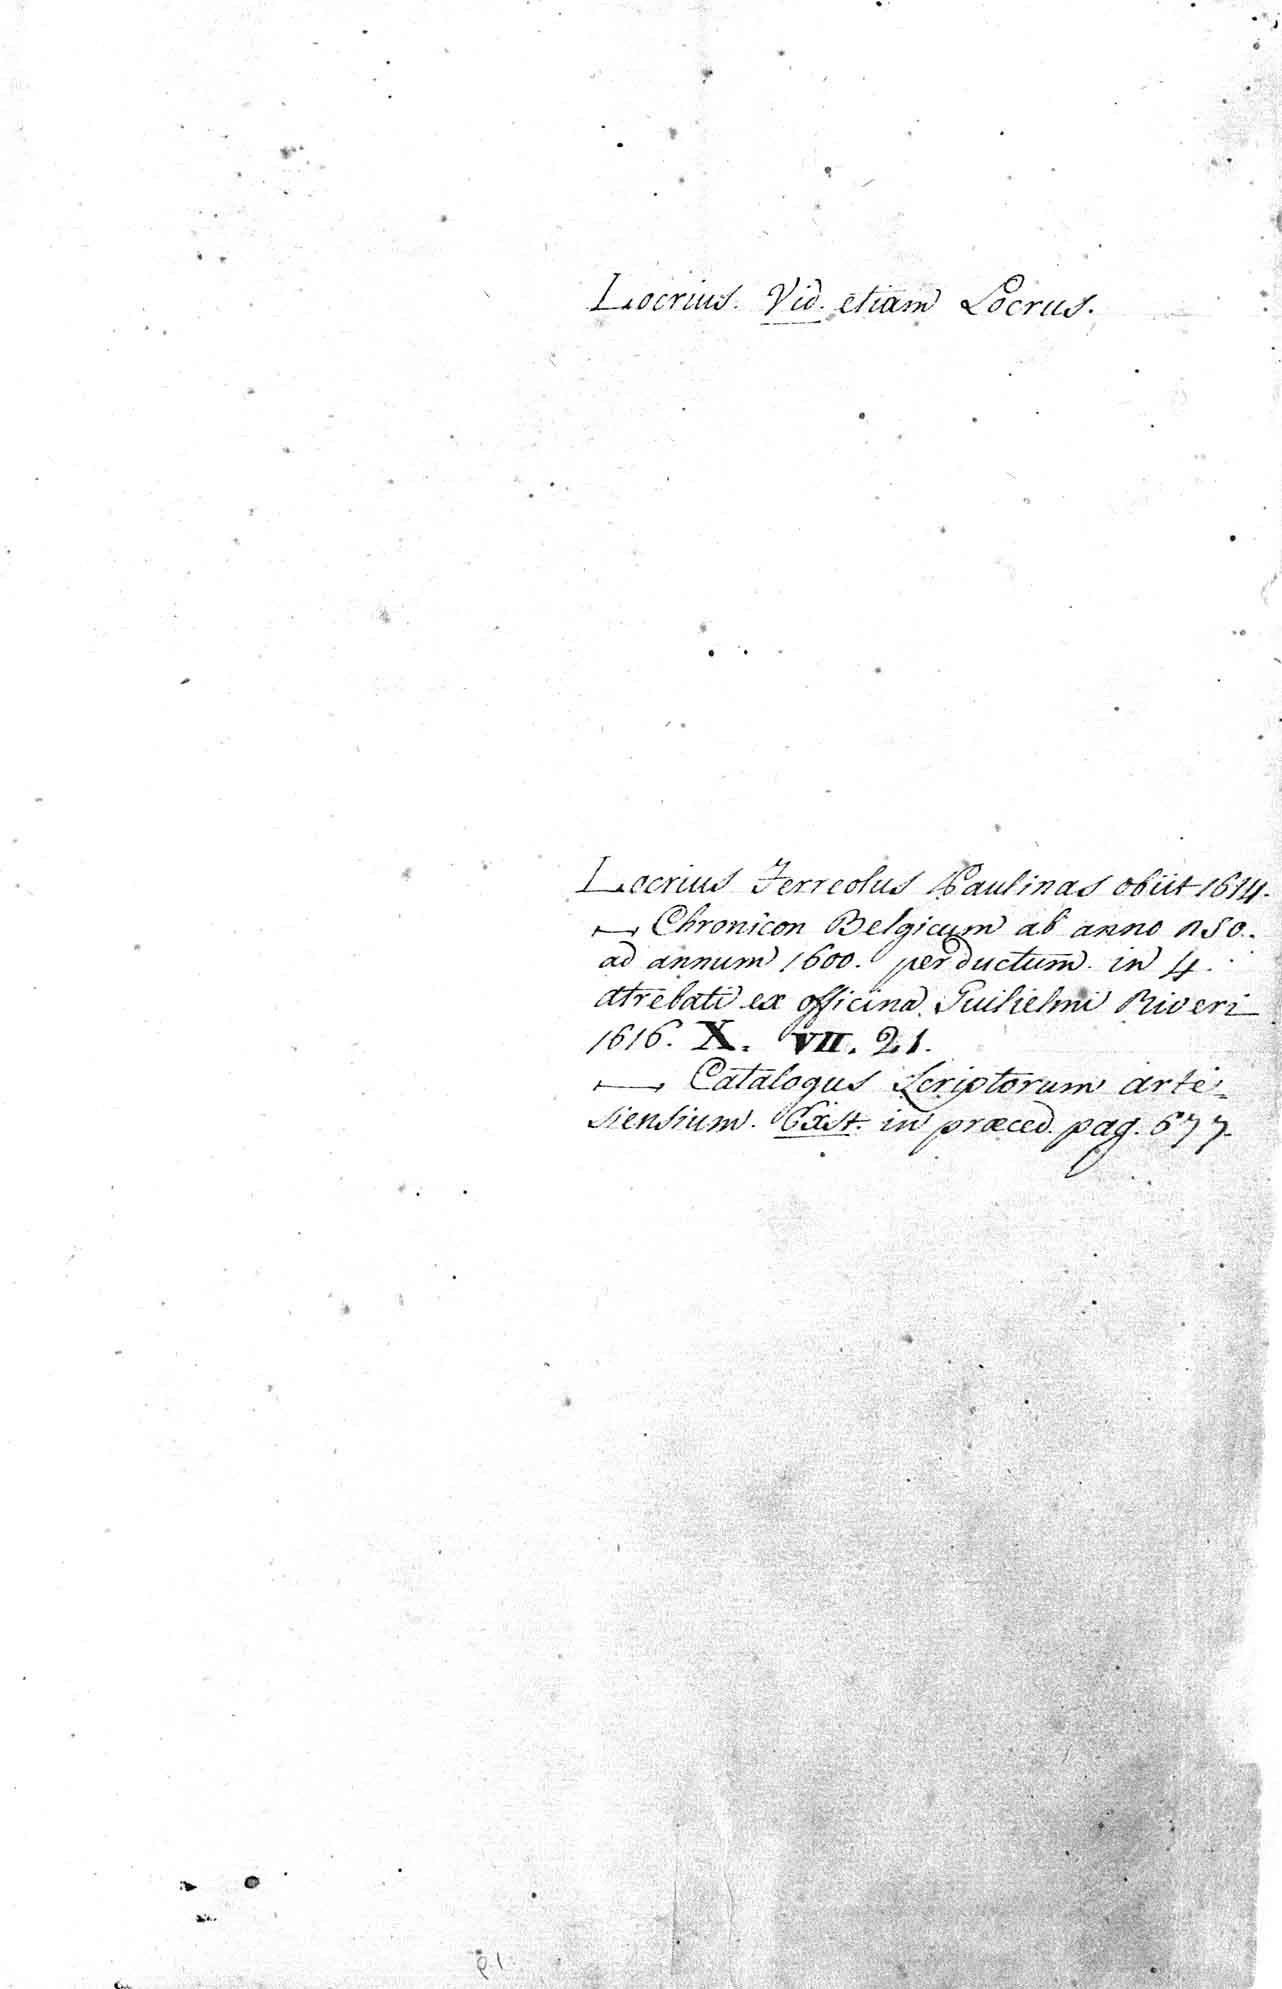 Locrius. Vid. etiam Locrus.
Locrius Ferreolus Paulinas obiit 1614.
Chronicon Belgicum ab anno 250.
ad annum 1600. perductum. in 4.
atrebati ex officina Guilielmi Riveri
1616. X. VII. 21.
Catalogus Scriptorum arte=
siensium. Exst. in præced. pag. 677.